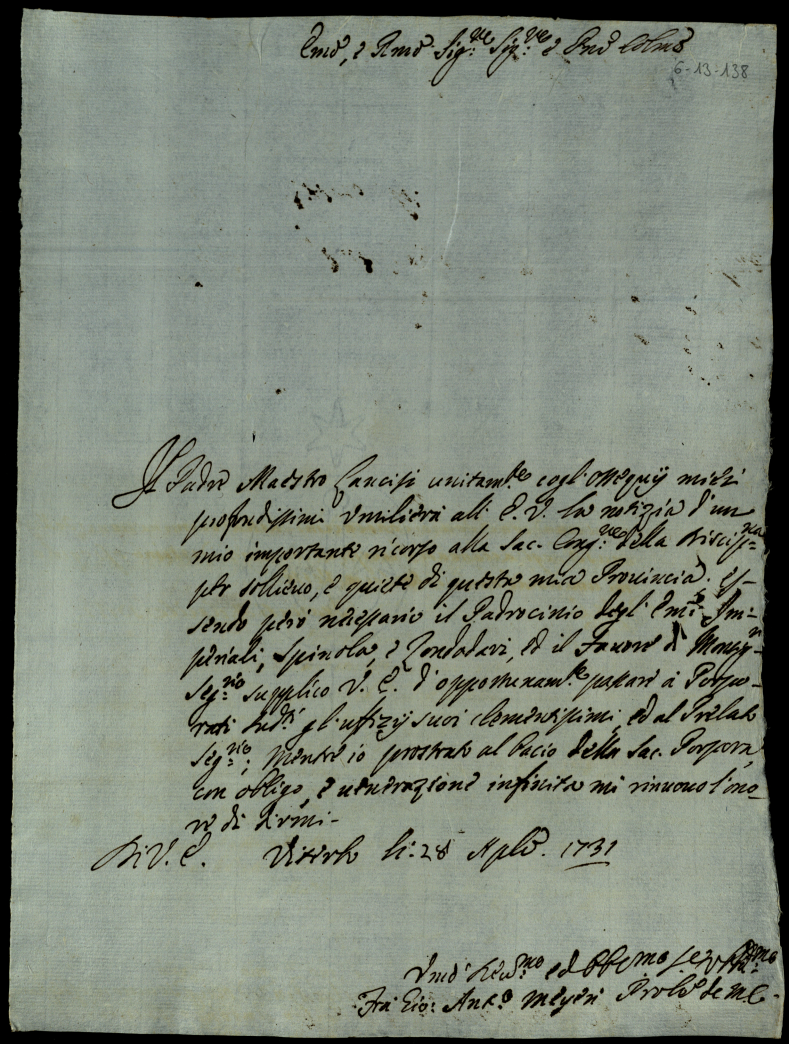 Emo, e Rmo Sig.re Sig.re e Pne Colmo
6-13-138
Il Padre Maestro Lancisi unitam.te cogl'ossequij miei
profondissimi umilierà all' E. V. la notizia d'un
mio importante ricorso alla Sac. Cong.ne della Discip.na
per sollievo, e quiete di questa mia Provincia. Es-
sendo però necessario il Padrocinio degl' Emi Im-
periali, Spinola, e Zondadari, ed il Favore di Monsig.r
Seg.rio supplico V. E. d'opportunam.te passare a Porpo-
rati sud.i gl'uffizij suoi clementissimi, ed al Prelato
Seg.rio; mentre io prostrato al bacio della Sac. Porpora,
con obligo, e venerazione infinita mi rinuovo l'ono-
re di dirmi-
Di V. E. Viterbo li. 28 Aple. 1731
Umo
ed Obbmo
Fra Gio: Ant.o